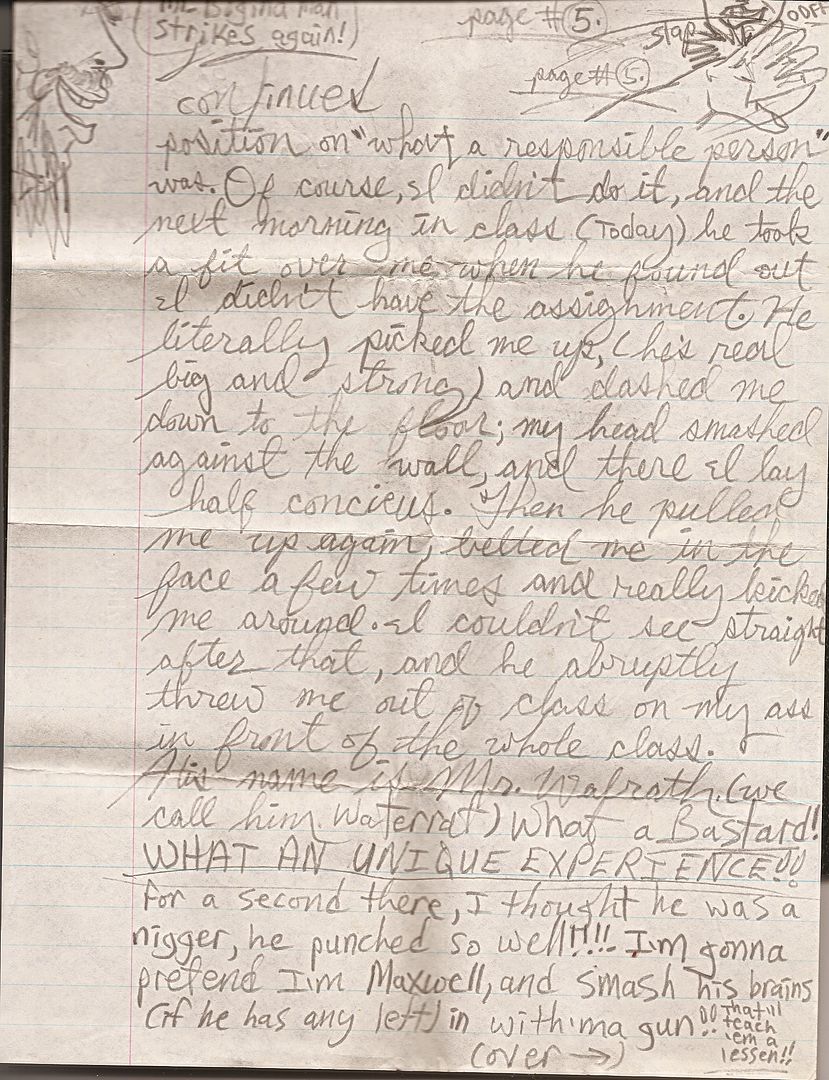 Mr. Bigma man
strikes again!
page # 5.
slap
page # 5.
continued
position on "what a responsible person"
was. Of course, I didn't do it, and the
next morning in class (Today) he took
a fit over me when he found out
I didn't have the assignment. He
literally picked me up, (he's real
big and strong) and dashed me
down to the floor; my head smashed
against the wall, and there I lay
half concieus. Then he pulled
me up again, belted me in the
face a few times and really kicked
me around. I couldn't see straight
after that, and he abruptly
threw me out of class on my ass
in front of the whole class.
His name is Mr. Walrath. (we
call him Waterrat) What a Bastard!
WHAT AN UNIQUE EXPERIENCE!!
For a second there, I thought he was a
nigger, he punched so well!!!!- I'm gonna
pretend I'm Maxwell, and smash his brains
(if he has any left) in with'ma gun!!
That'll
teach
'em a
lessen!!
(over →)